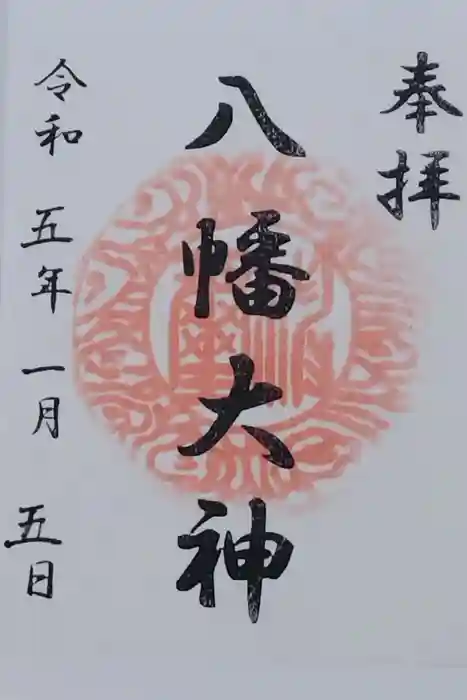 奉拝
八幡大神
令和五年一月五日